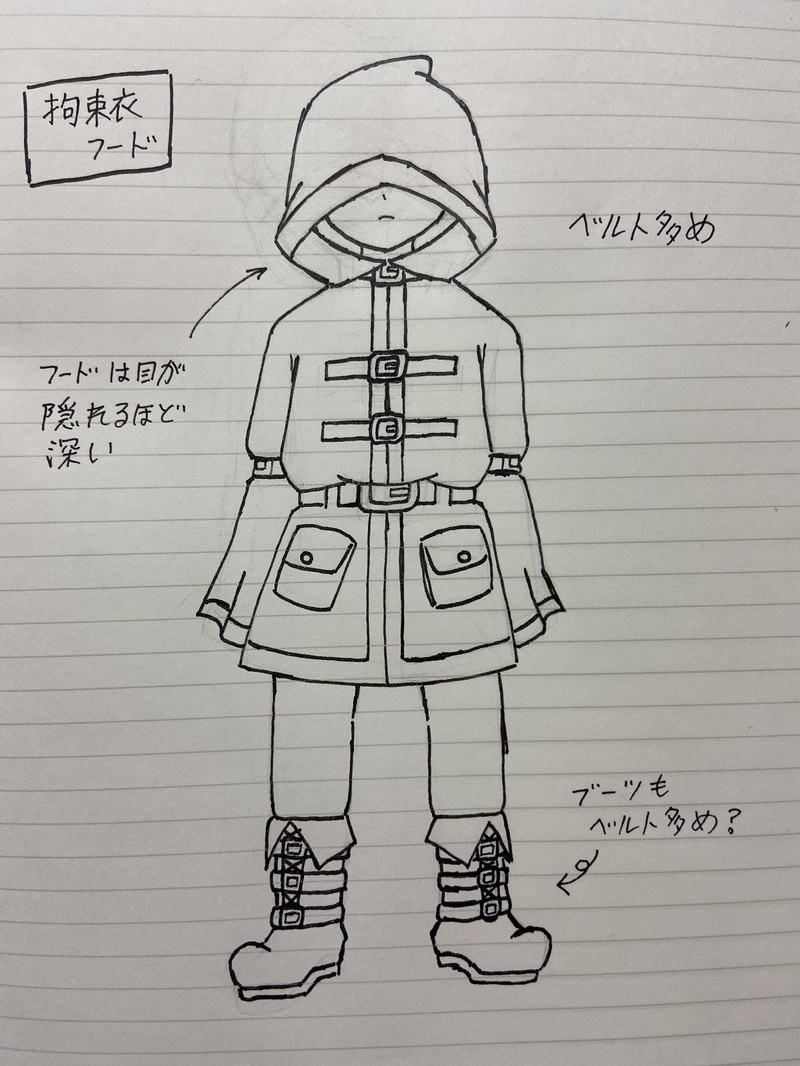 拘束衣
フード
ベルト多め
フードは目が
隠れるほど
深い
ブーツも
ベルト多め?